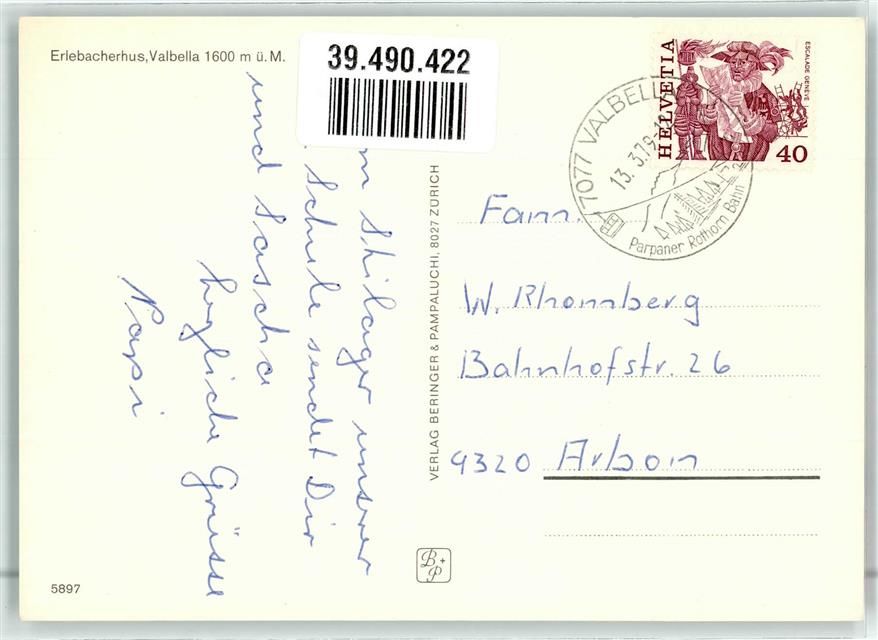 Erlebacherhus, Valbella 1600 m ü. M.
39.490.422
m Skilager unserer
Schule sendet Dir
und Sascha
herzliche Grüsse
Papi
5897
VERLAG BERINGER & PAMPALUCHI, 8027 ZÜRICH
B+P
HELVETIA
ESCALADE GENÈVE
40
7077 VALBELLA
13.3.79-1
Parpaner Rothorn Bahn
Fam.
W. Rhomberg
Bahnhofstr. 26
9320 Arbon